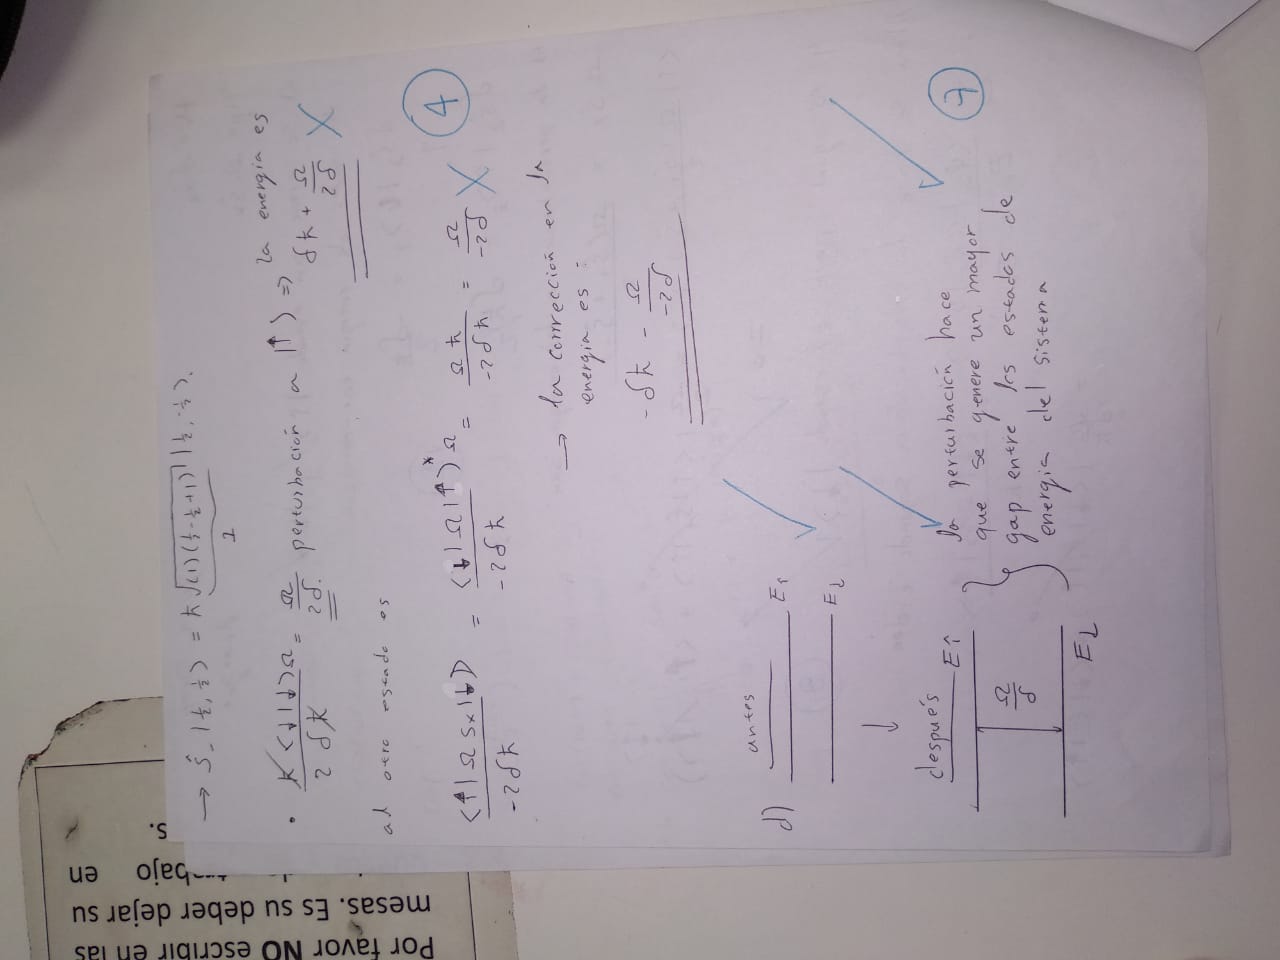 → Ŝ₋ |½,½⟩ = ħ √((1)(½-½+1)) |½,-½⟩.
1
• ħ⟨↓|↓⟩Ω / 2δħ = Ω/2δ. perturbación a |↑⟩ ⇒ la energía es
δħ + Ω/2δ X
al otro estado es
4
⟨↑|Ω Sx|↓⟩ / -2δħ = ⟨↓|Ω|↑⟩* Ω / -2δħ = Ωħ / -2δħ = Ω / -2δ X
→ la corrección en la
energía es:
-δħ - Ω/-2δ
d) antes
E↑
E↓
↓
después
E↑
Ω/δ
E↓
la perturbación hace
que se genere un mayor
gap entre los estados de
energía del sistema
7
Por favor NO escribir en las
mesas. Es su deber dejar su
en
s.